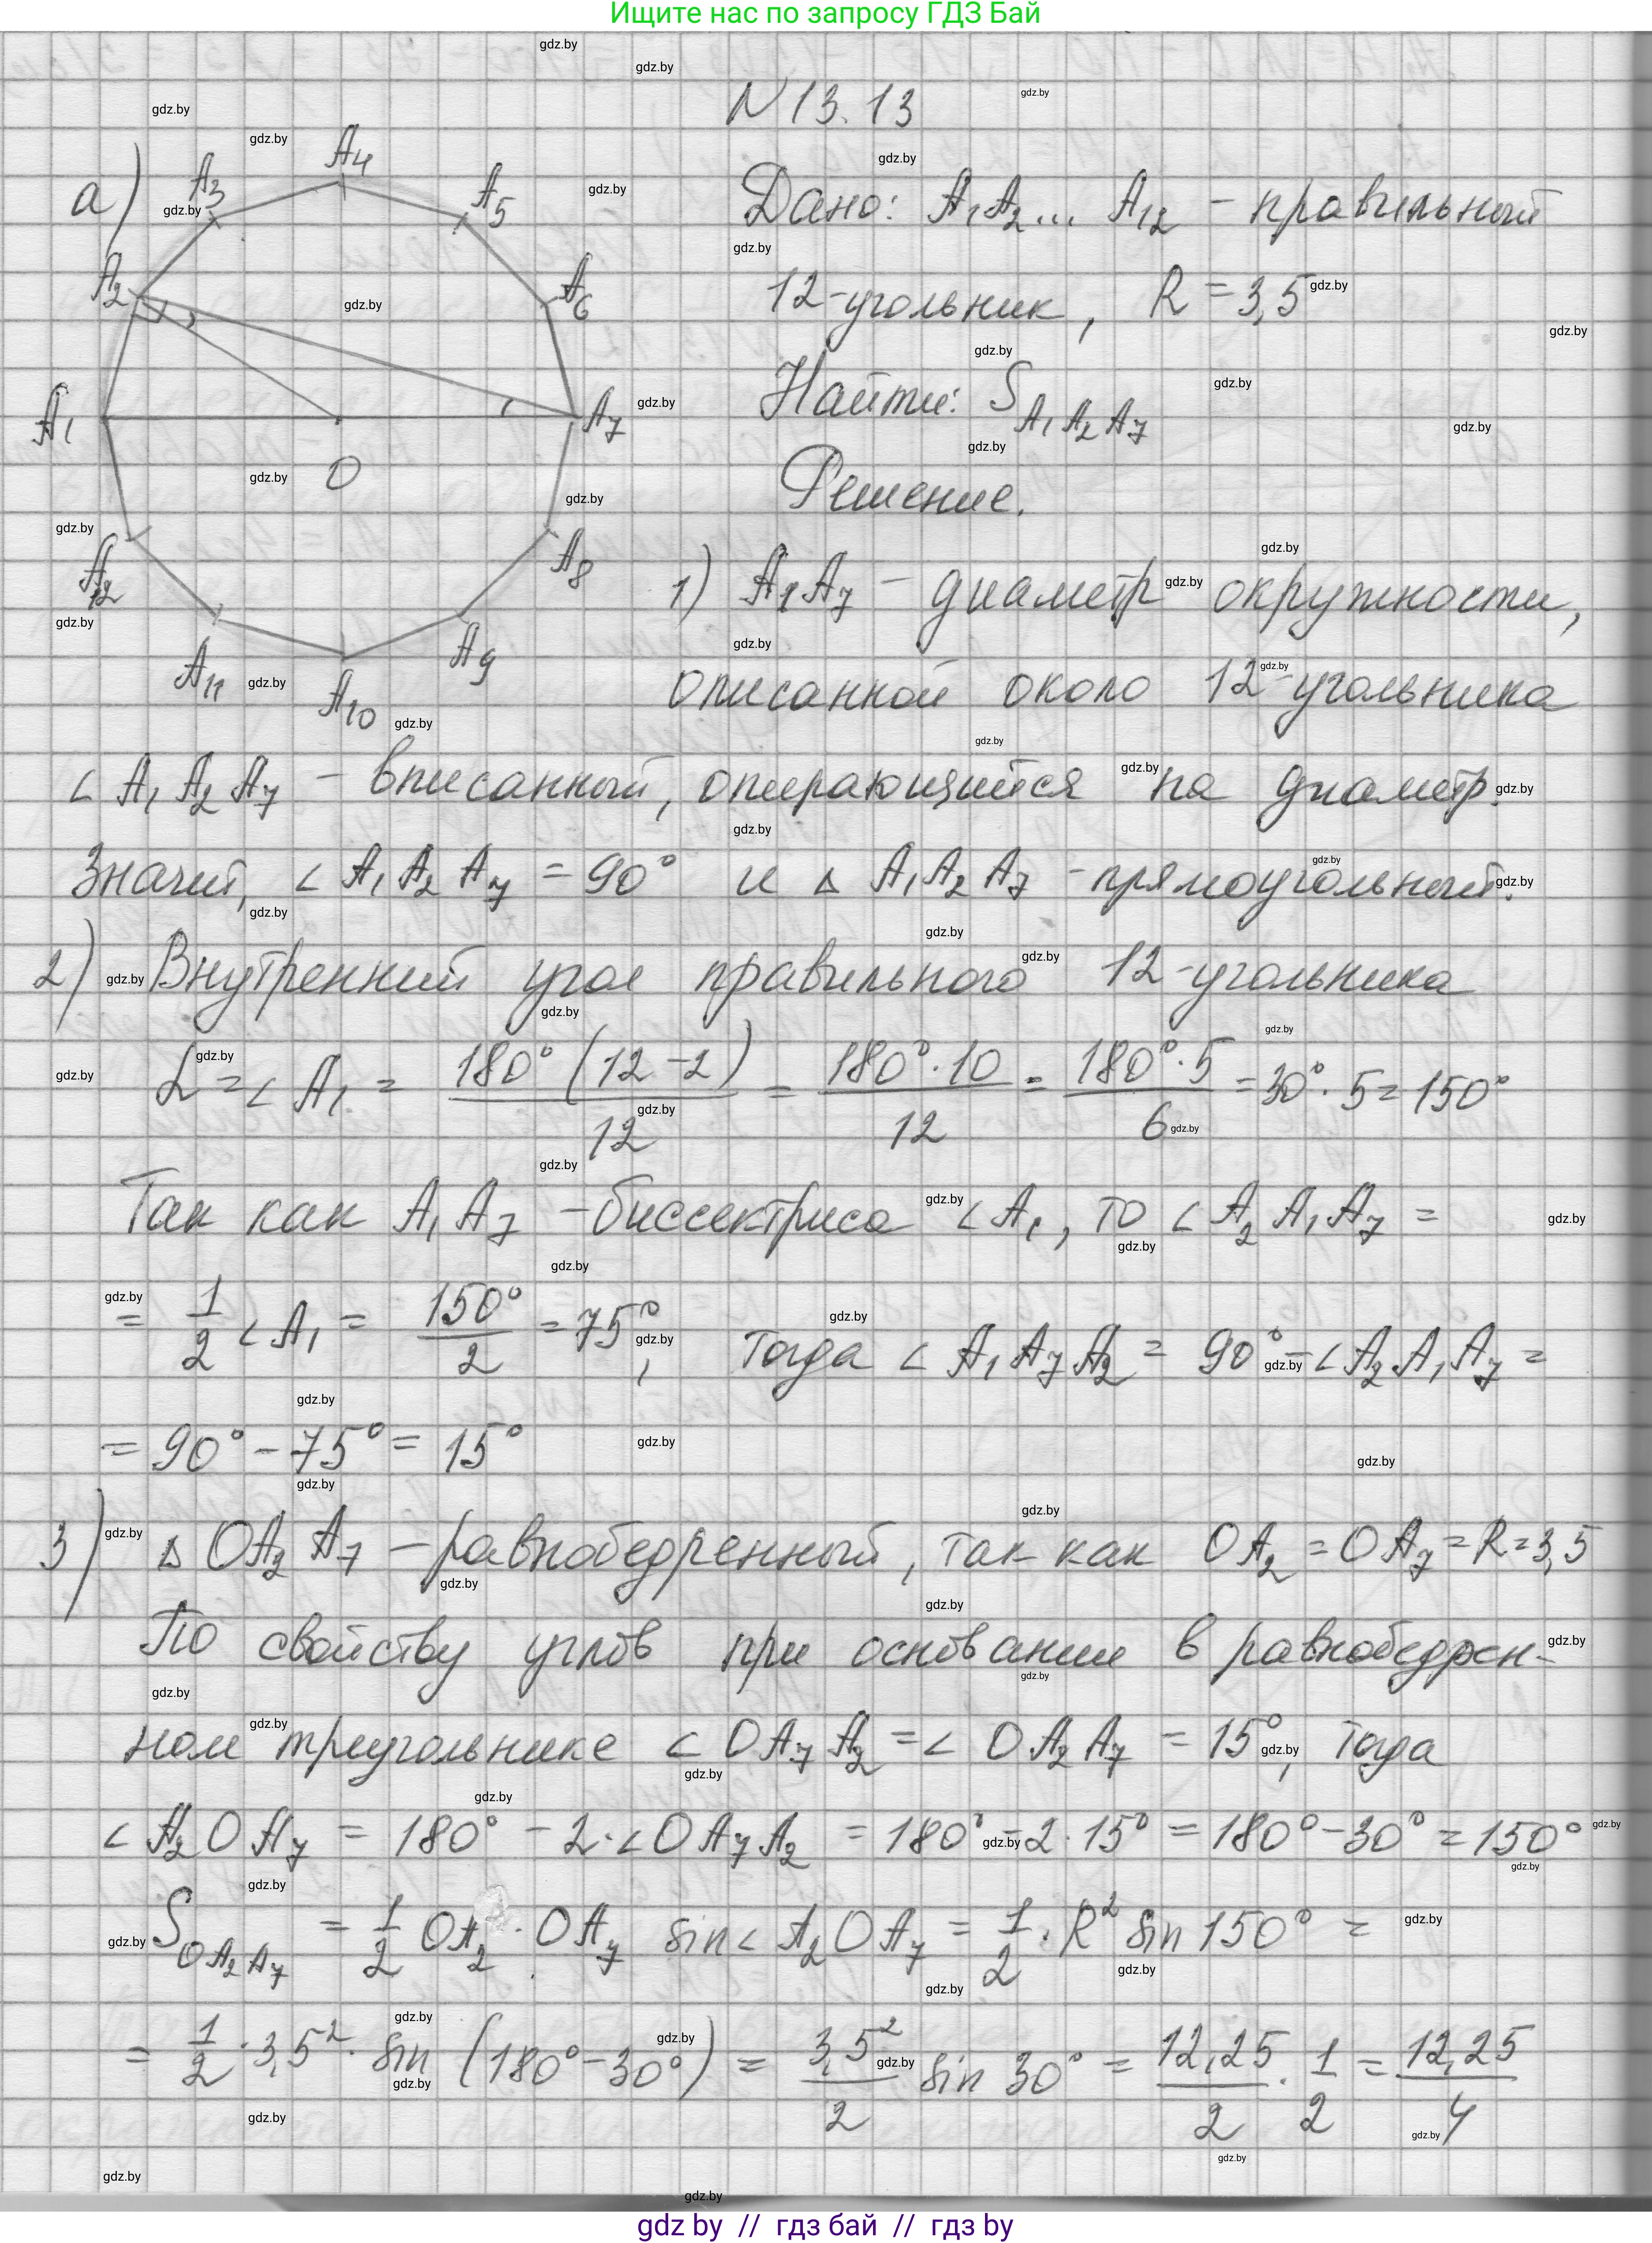 Ищите нас по запросу ГДЗ Бай
N 13.13
а)
Дано: A₁A₂... A₁₂ - правильный
12-угольник, R = 3,5
Найти: S A₁A₂A₇
Решение.
A₁ A₂ A₃ A₄ A₅ A₆ A₇ A₈ A₉ A₁₀ A₁₁ A₁₂ O
1) A₁A₇ - диаметр окружности,
описанной около 12-угольника
∠ A₁A₂A₇ - вписанный, опирающийся на диаметр.
Значит, ∠ A₁A₂A₇ = 90° и Δ A₁A₂A₇ - прямоугольный.
2) Внутренний угол правильного 12-угольника
α = ∠ A₁ = 180° (12-2) / 12 = 180° · 10 / 12 = 180° · 5 / 6 = 30° · 5 = 150°
Так как A₁A₇ - биссектриса ∠A₁, то ∠A₂A₁A₇ =
= 1/2 ∠A₁ = 150° / 2 = 75°, тогда ∠ A₁A₇A₂ = 90° - ∠A₂A₁A₇ =
= 90° - 75° = 15°
3) Δ OA₂A₇ - равнобедренный, так как OA₂ = OA₇ = R = 3,5
По свойству углов при основании в равнобедрен-
ном треугольнике ∠ OA₇A₂ = ∠ OA₂A₇ = 15°, тогда
∠ A₂OA₇ = 180° - 2·∠OA₇A₂ = 180° - 2·15° = 180° - 30° = 150°
S OA₂A₇ = 1/2 OA₂ · OA₇ sin∠ A₂OA₇ = 1/2 · R² sin 150° =
= 1/2 · 3,5² · sin (180° - 30°) = 3,5² / 2 sin 30° = 12,25 / 2 · 1/2 = 12,25 / 4
gdz by // гдз бай // гдз by